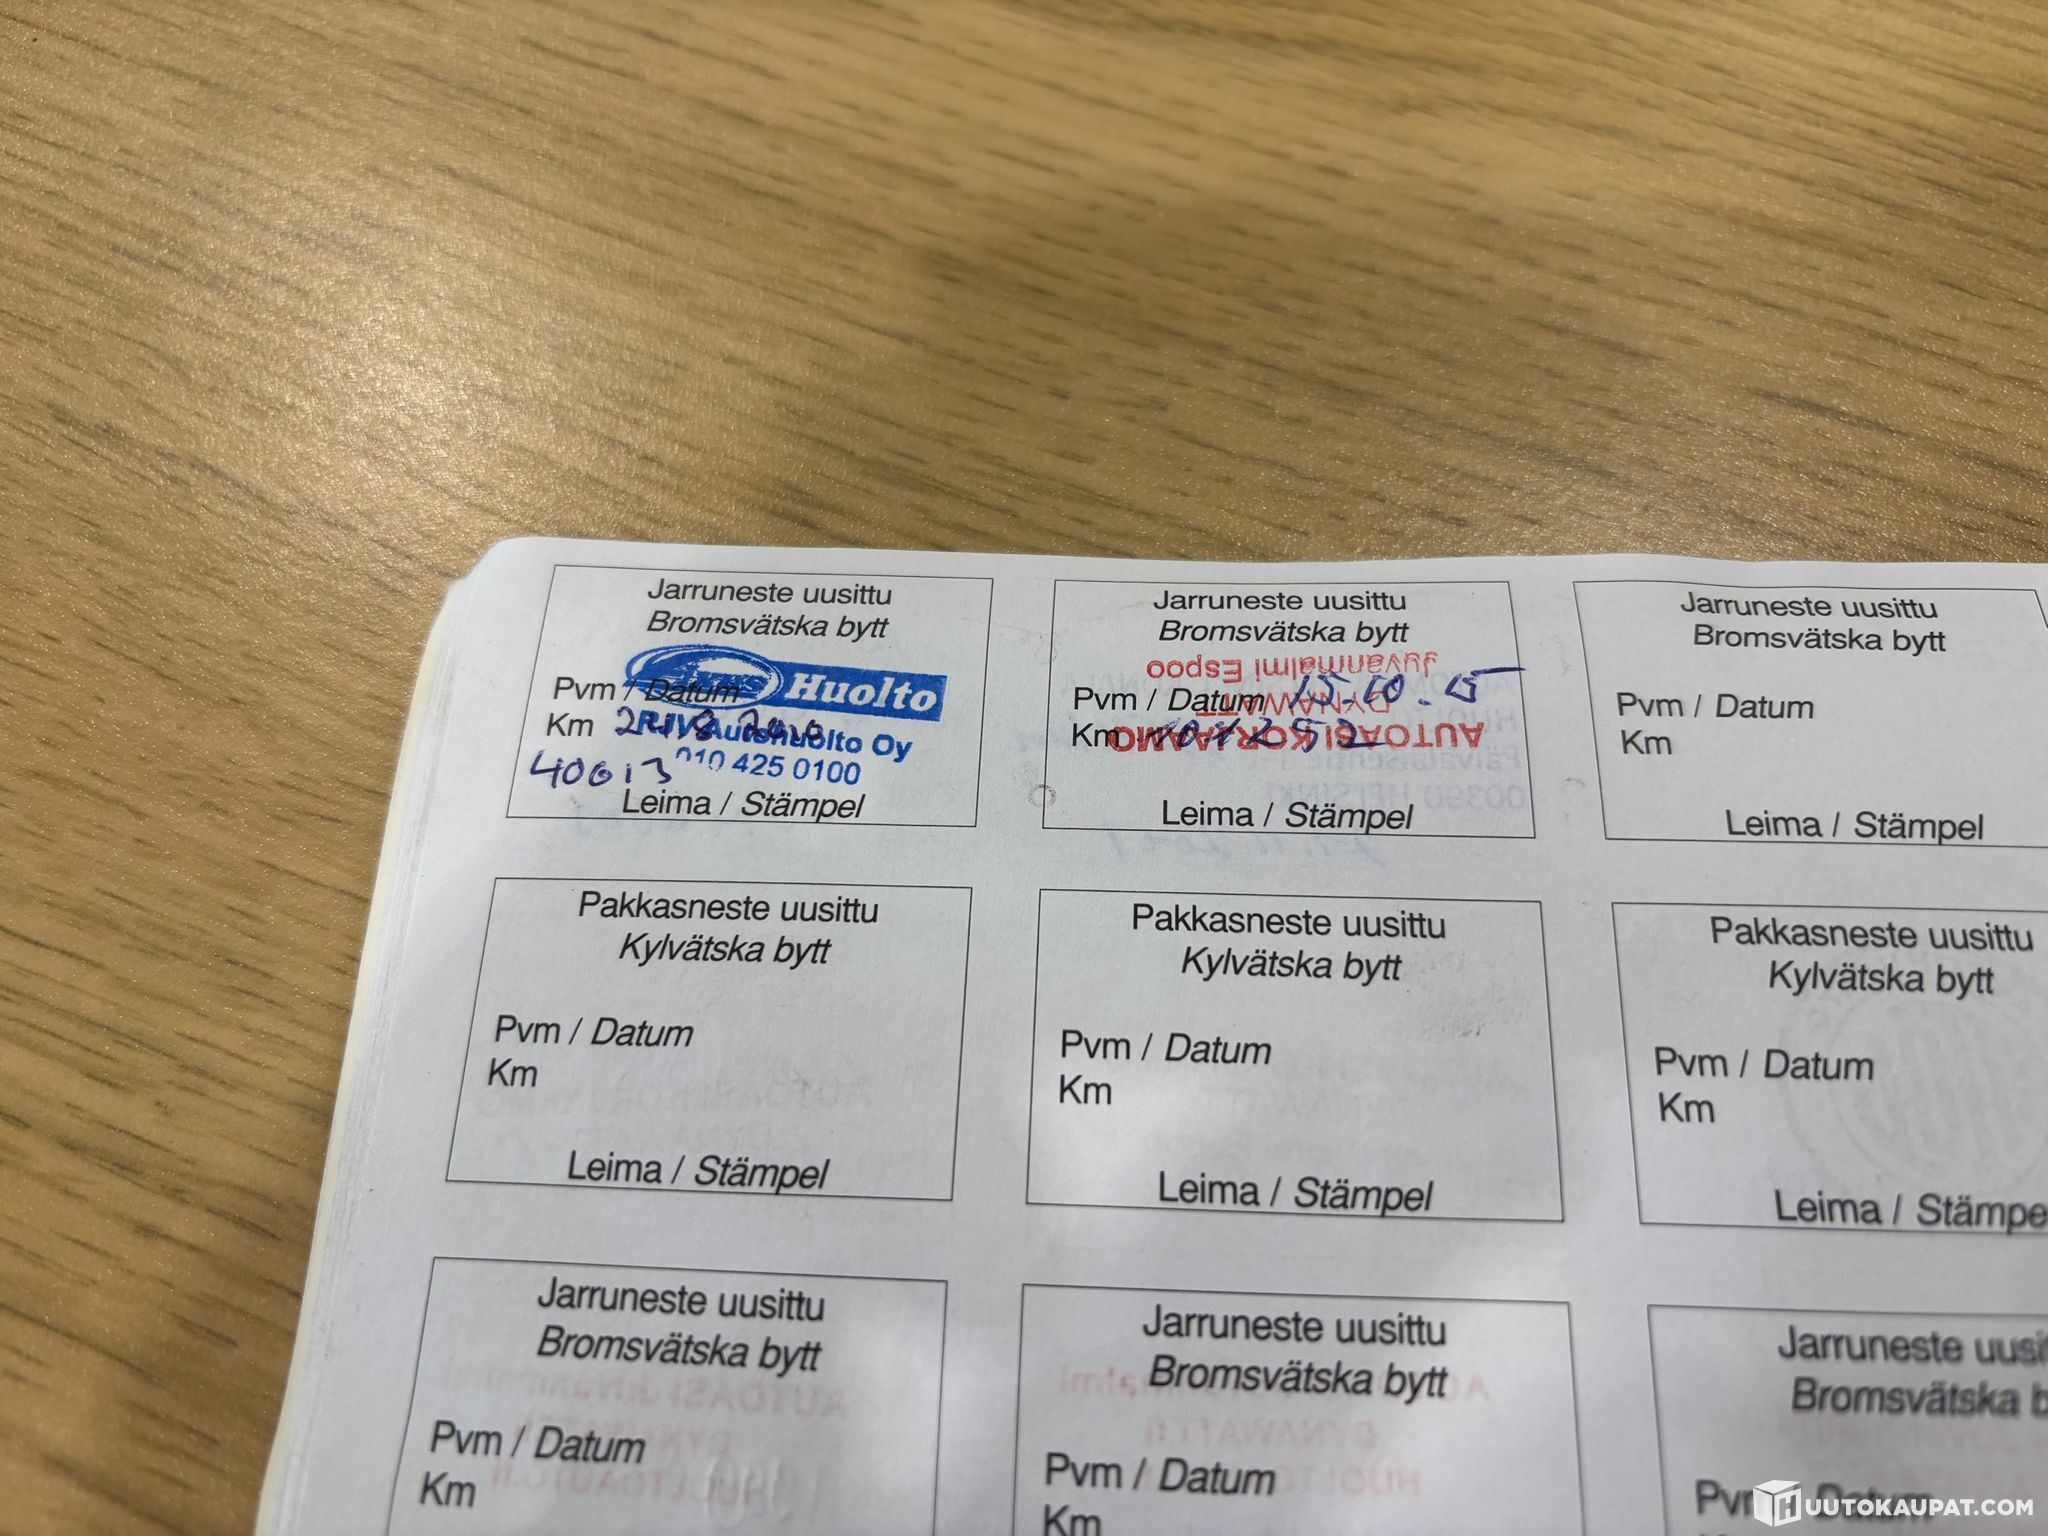 Jarruneste uusittu
Bromsvätska bytt
Huolto
Pvm / Datum
Km
RJV Autohuolto Oy
010 425 0100
40013
Leima / Stämpel
Jarruneste uusittu
Bromsvätska bytt
Jyvanmalmi Espoo
Pvm / Datum 15.10.15
DYNAWATT
Km 101252
AUTOASI KORJAAMO
Leima / Stämpel
Jarruneste uusittu
Bromsvätska bytt
Pvm / Datum
Km
Leima / Stämpel
Pakkasneste uusittu
Kylvätska bytt
Pvm / Datum
Km
Leima / Stämpel
Pakkasneste uusittu
Kylvätska bytt
Pvm / Datum
Km
Leima / Stämpel
Pakkasneste uusittu
Kylvätska bytt
Pvm / Datum
Km
Leima / Stämpe
Jarruneste uusittu
Bromsvätska bytt
Pvm / Datum
Km
Jarruneste uusittu
Bromsvätska bytt
Pvm / Datum
Km
Jarruneste uusit
Bromsvätska b
Pvm
HUUTOKAUPAT.COM